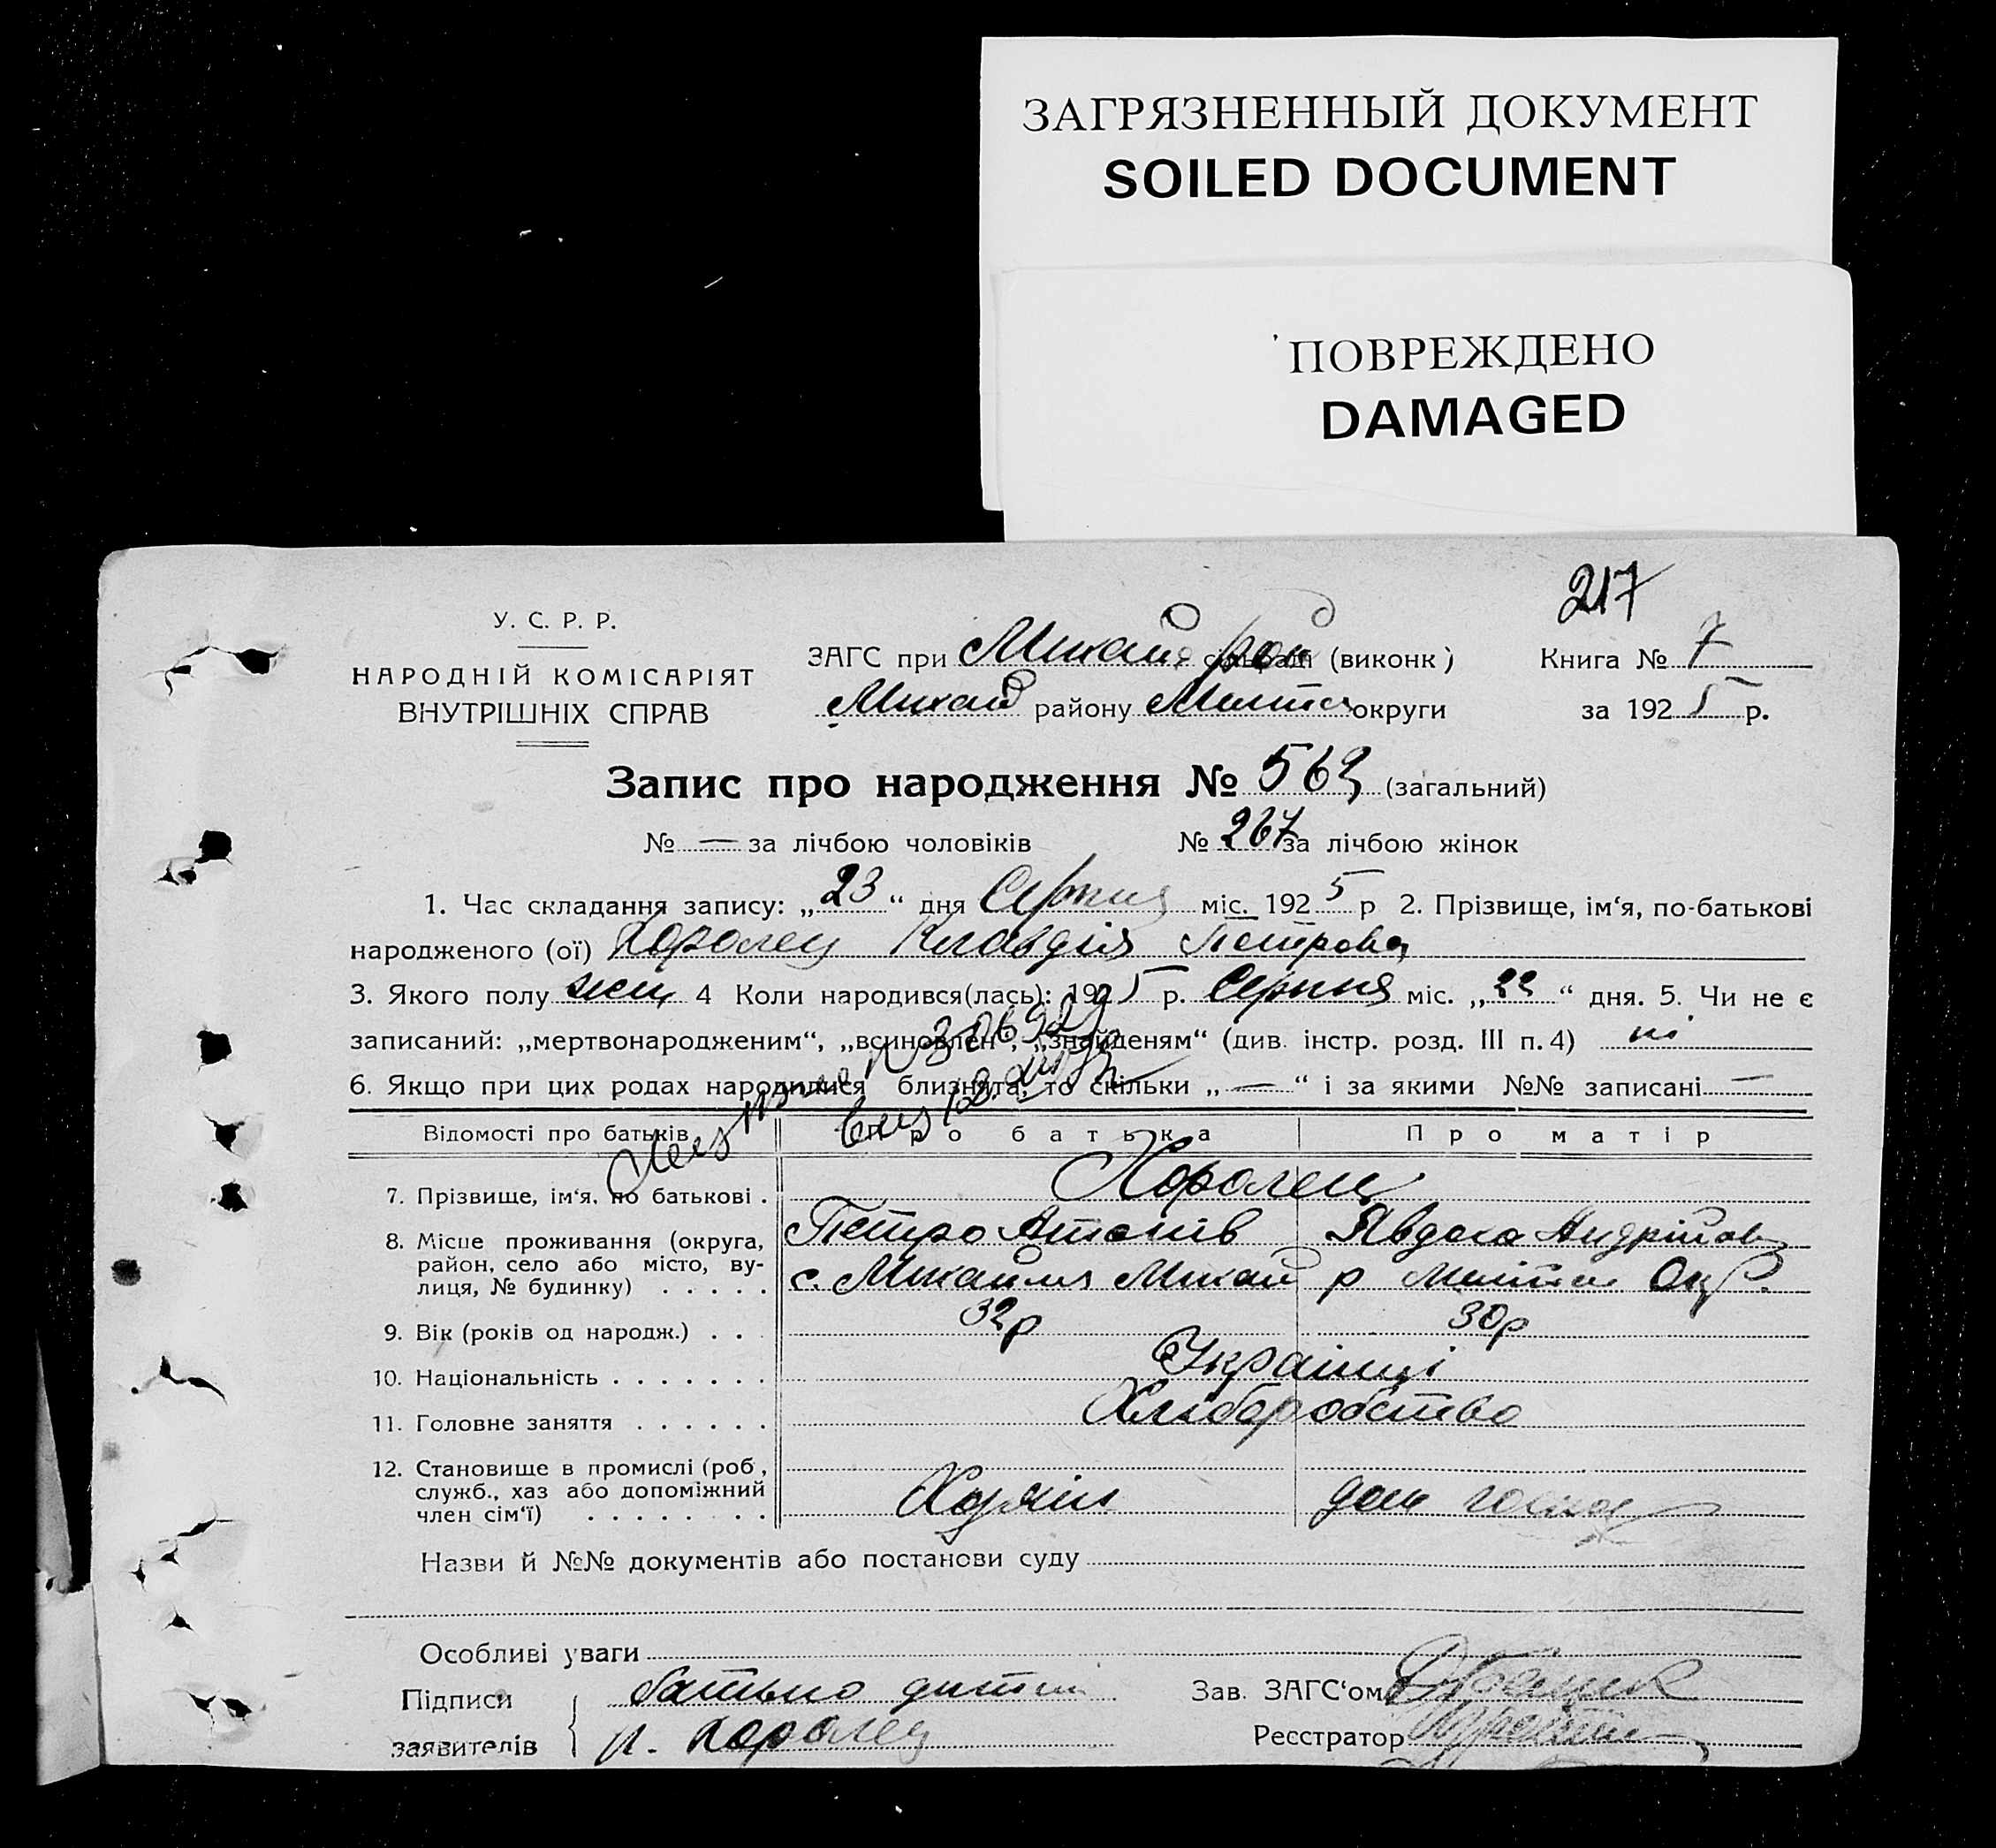 ЗАГРЯЗНЕННЫЙ ДОКУМЕНТ
SOILED DOCUMENT
ПОВРЕЖДЕНО
DAMAGED
217
У. С. Р. Р.
НАРОДНІЙ КОМІСАРІЯТ
ВНУТРІШНІХ СПРАВ
ЗАГС при Михайл рай (виконк)
Михайл району округи
Книга № 7
за 1925 р.
Запис про народження № 569 (загальний)
№ — за лічбою чоловіків № 267 за лічбою жінок
1. Час складання запису: „23“ дня Серпня міс. 1925 р 2. Прізвище, ім‘я, по-батькові
народженого (ої) Королец Клавдія Петрова
3. Якого полу жіц 4 Коли народився(лась): 1925 р. Серпня міс. „22“ дня. 5. Чи не є
записаний: „мертвонародженим“, „всиновлен“, „знайденям“ (див. інстр. розд. III п. 4) ні
6. Якщо при цих родах народилися близнята, то скільки „—“ і за якими №№ записані —
Відомості про батьків Про батька Про матір
7. Прізвище, ім‘я, по батькові . Королец
Петро Антонів Явдоха Андрійов
8. Місце проживання (округа,
район, село або місто, ву-
лиця, № будинку) . . . . . с. Михайля Михай р Окр.
9. Вік (років од народж.) . . . 32р 30р
10. Національність . . . . . . . Українці
11. Головне заняття . . . . . . Хліборобство
12. Становище в промислі (роб,
служб., хаз або допоміжний
член сім‘ї) . . . . . . . . Хазяїн дом госпо
Назви й №№ документів або постанови суду
Особливі уваги
Підписи
заявителів
батько дитини
П. Королец
Зав. ЗАГС‘ом
Реєстратор